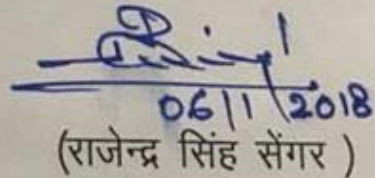 06/11/2018
(राजेन्द्र सिंह सेंगर )